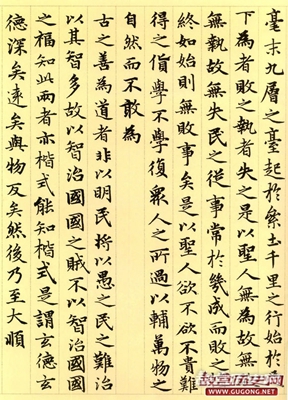 毫末九層之臺起於絫土千里之行始於
下為者敗之執者失之是以聖人無為故無
無執故無失民之從事常於幾成而敗之
終如始則無敗事矣是以聖人欲不欲不貴難
得之貨學不學復眾人之所過以輔萬物之
自然而不敢為
古之善為道者非以明民將以愚之民之難治
以其智多故以智治國國之賊不以智治國國
之福知此兩者亦楷式能知楷式是謂玄德玄
德深矣遠矣與物反矣然後乃至大順
WWW.GUGONG.NET